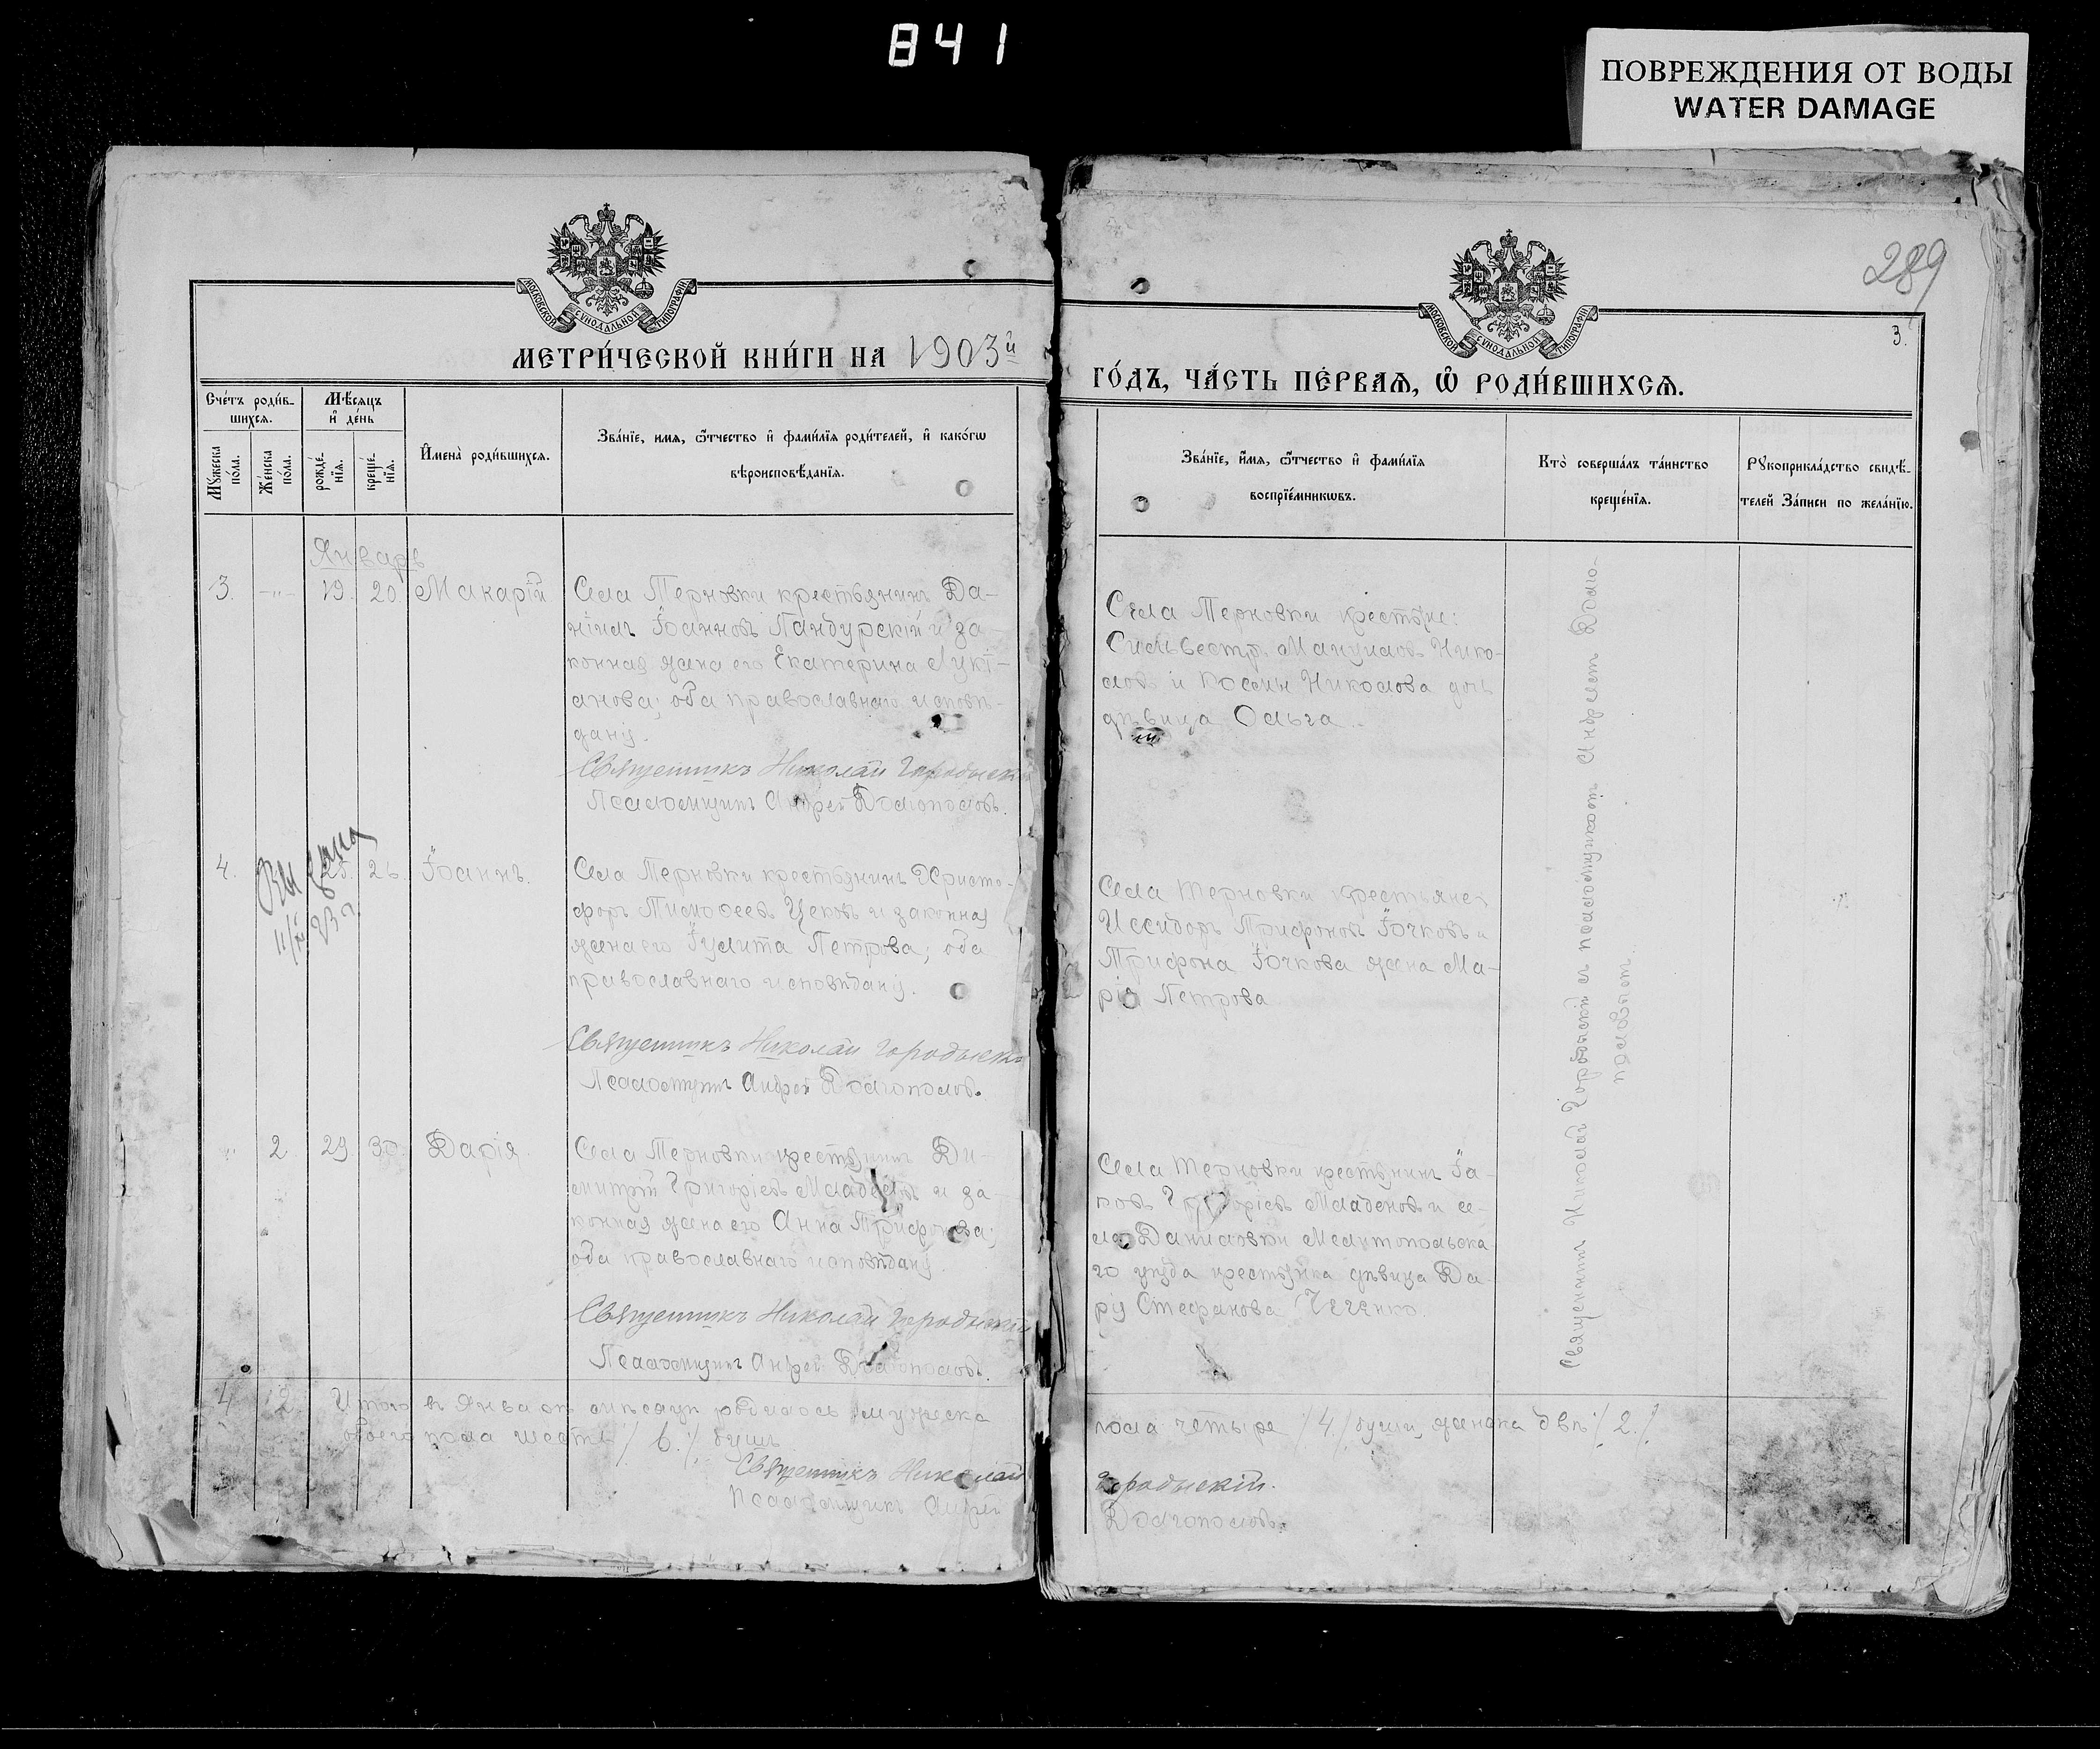 841
ПОВРЕЖДЕНИЯ ОТ ВОДЫ
WATER DAMAGE
289
3.
МОСКОВСКОЙ СУНОДАЛЬНОЙ ТИПОГРАФІИ
МОСКОВСКОЙ СУНОДАЛЬНОЙ ТИПОГРАФІИ
МЕТРИ́ЧЕСКОЙ КНИ́ГИ НА 1903й
ГО́ДЪ, ЧА́СТЬ ПЕ́РВАѦ, Ѽ РОДИ́ВШИХСѦ.
Сче́тъ роди́в-
шихся.
Мѣ́сяцъ
и҆ де́нь
Мꙋ́жеска
по́ла.
Же́нска
по́ла.
рожде́-
нїя.
креще́-
нїя.
И҆мена̀ роди́вшихся.
Зва́нїе, и́мя, ѻ҆́тчество и҆ фами́лїя роди́телей, и҆ како́гѡ
вѣроисповѣ́данїя.
Зва́нїе, и́мя, ѻ҆́тчество и҆ фами́лїя
воспрїе́мникѡвъ.
Кто̀ соверша́лъ та́инство
креще́нїя.
Рꙋкоприкла́дство свидѣ́-
телей За́писи по жела́нїю.
Январь
3. -"- 19. 20. Макарій
Села Терновки крестьянинъ Да-
ніилъ Іоанновъ Пандурскій и за-
конная жена его Екатерина Лукі-
анова; оба православнаго исповѣ-
данія.
Священникъ Николай Городыскій
Псаломщикъ Андрей Долгополовъ.
Села Терновки крестьяне:
Сильвестръ Мануиловъ Нико-
ловъ и Николова дочь
дѣвица Ольга.
4. 25. 26. Іоаннъ.
Выдана
Села Терновки крестьянинъ Христо-
форъ Тимофеевъ Цековъ и законная
жена его Іулита Петрова; оба
православнаго исповѣданія.
Священникъ Николай Городыскій
Псаломщикъ Андрей Долгополовъ.
Села Терновки крестьяне
Исидоръ Трифоновъ Іочковъ и
Трифона Іочкова жена Ма-
рія Петрова
" 2. 29. 30. Дарія.
Села Терновки крестьянинъ Ди-
митрій Григоріевъ Младеновъ и за-
конная жена его Анна Трифонова;
оба православнаго исповѣданія.
Священникъ Николай Городыскій
Псаломщикъ Андрей Долгополовъ.
Села Терновки крестьянинъ Іа-
ковъ Григоріевъ Младеновъ и се-
ла Даниловки Мелитопольска
го уѣзда крестьянка дѣвица Да-
рія Стефанова Чеченко.
Священникъ Николай Городыскій съ псаломщикомъ Андреемъ Долго-
половымъ.
4 2 Итого въ Январѣ мѣсяцѣ родилось мужеска
пола четыре /4/ души, женска двѣ /2./
обоего пола шесть /6./ душъ
Священникъ Николай
Городыскій.
Псаломщикъ Андрей
Долгополовъ.